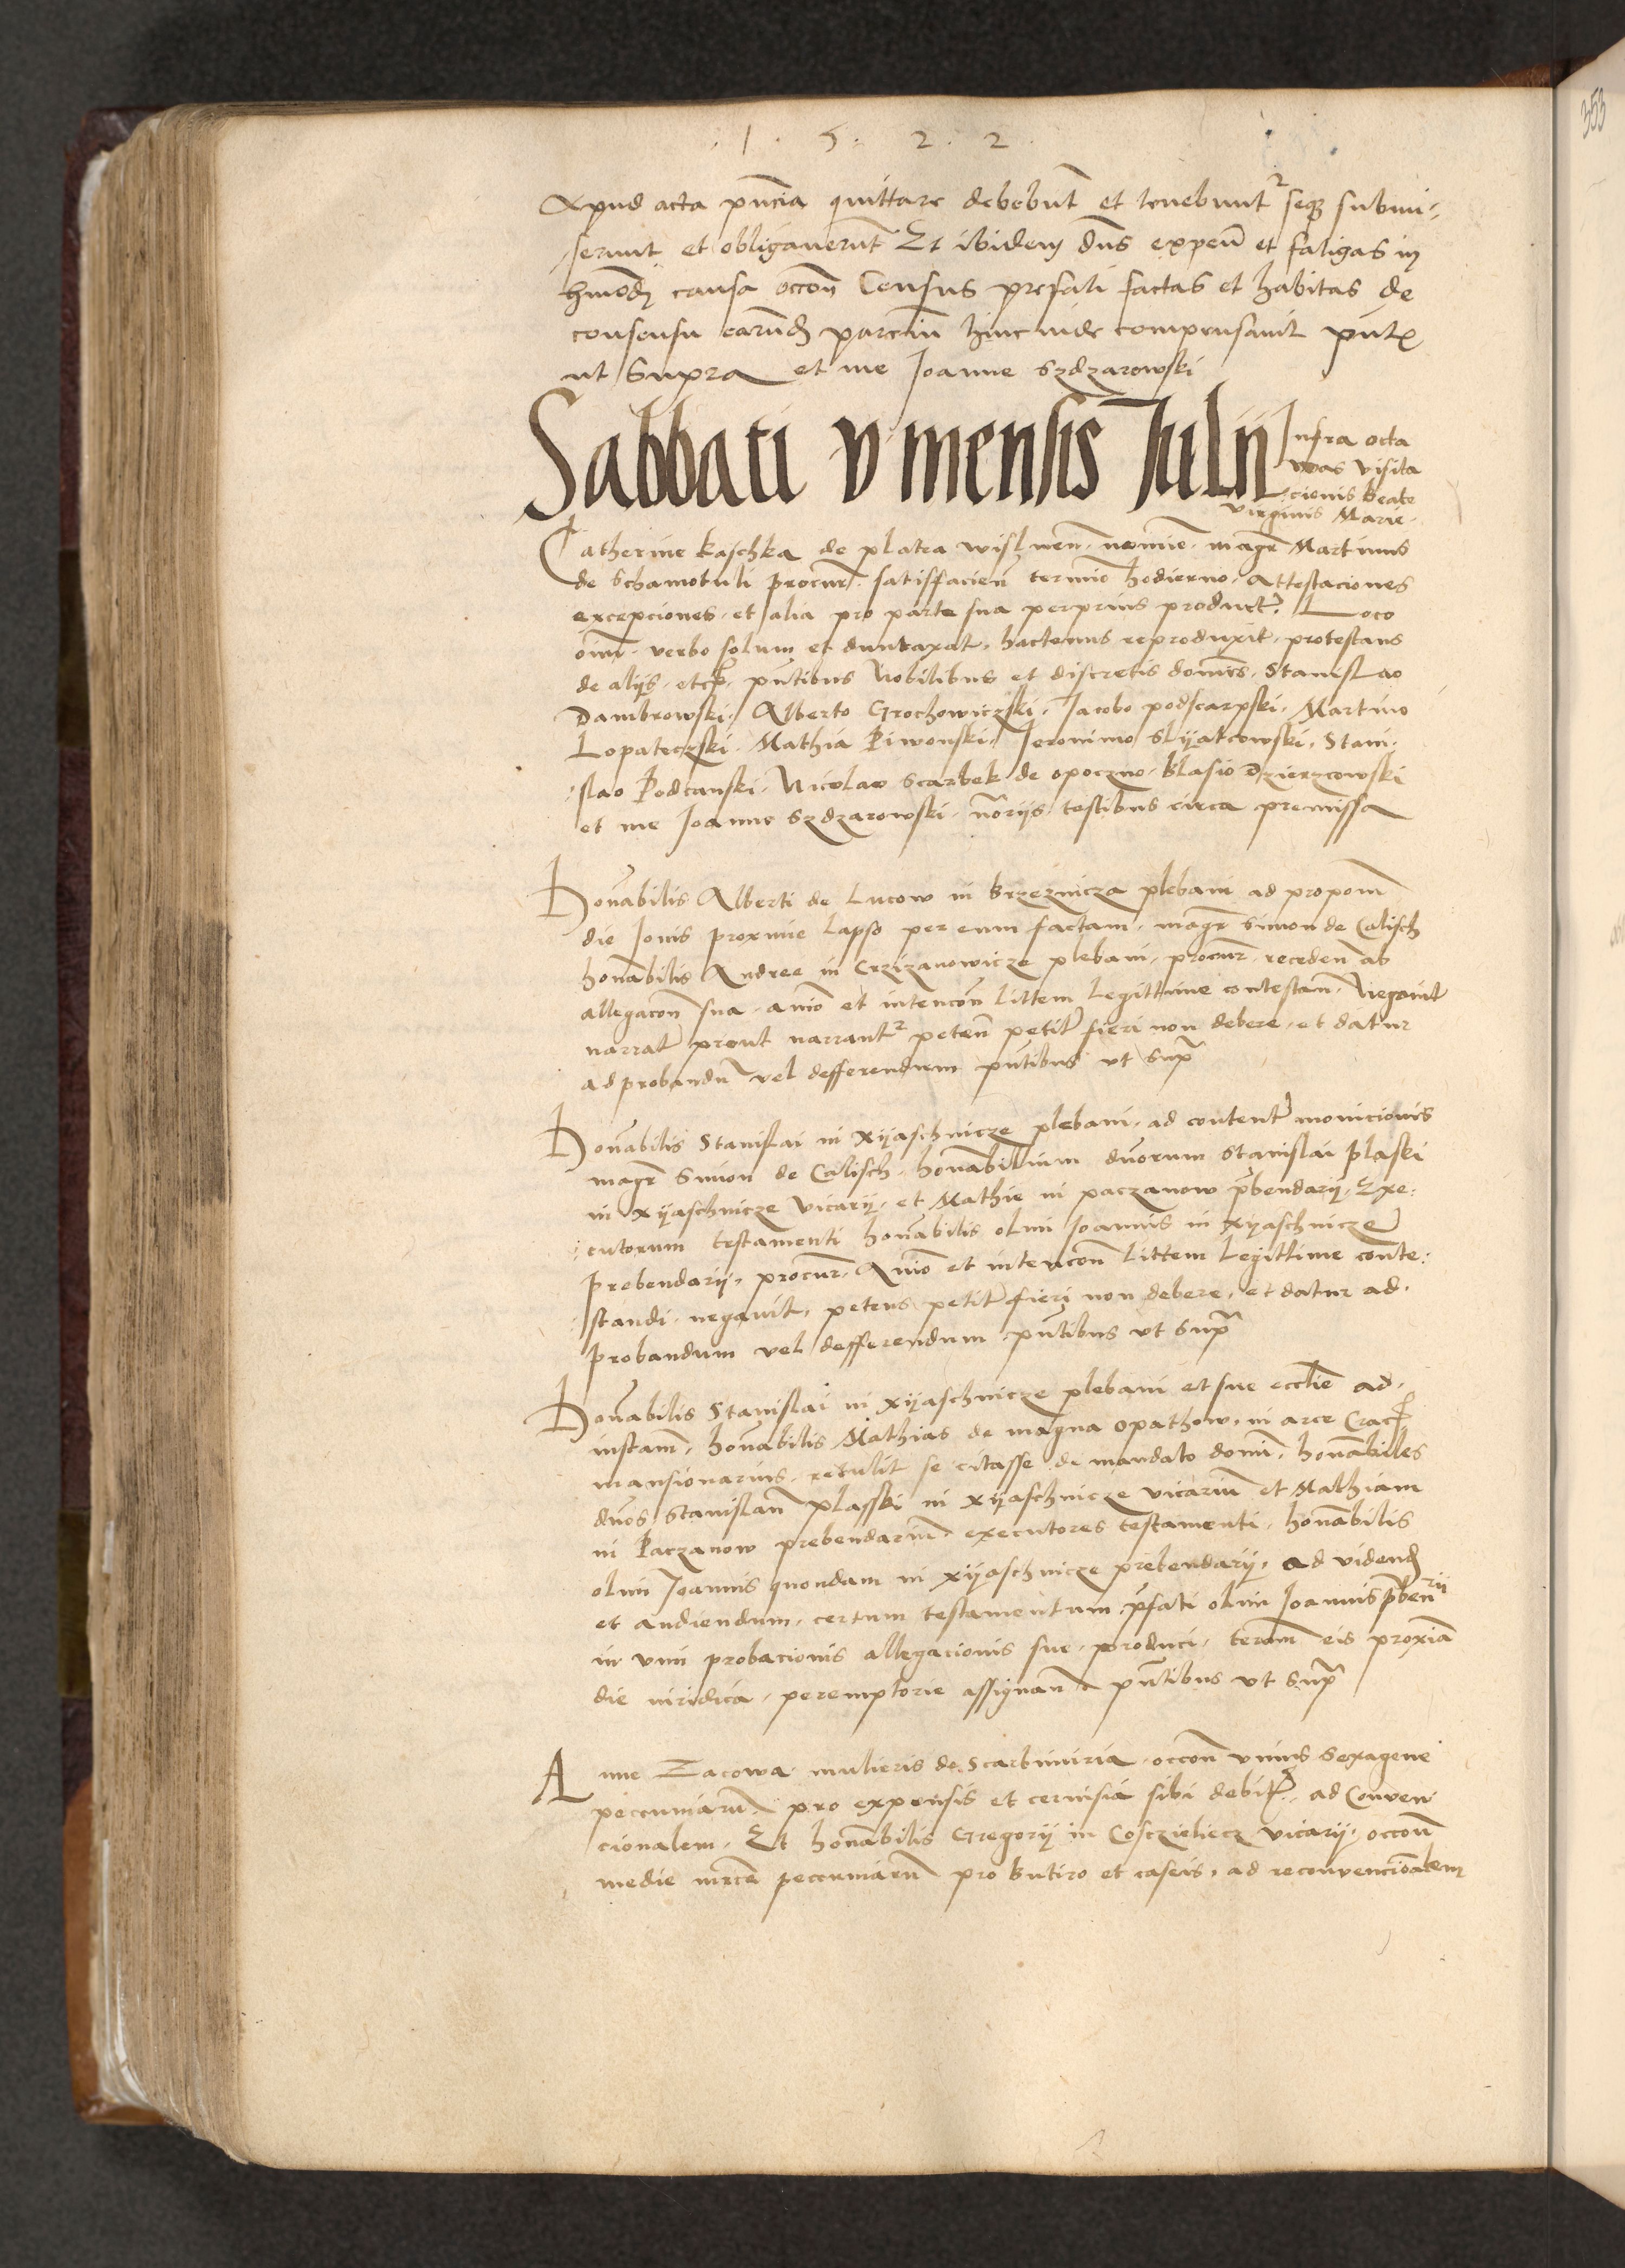 1 · 5 · 2 · 2
Apud acta pñcia quittare debebūt et tenebuntʳ seqȝ submi-
serunt et obligaverūt Et ibidem dns expeñ et fatigas in
hmōdi causa occōn Census prefati factas et habitas de
consensu earūd parciū hinc inde compensavit pñtĘ
ut Supra et me Joanne Szdzarowski
Sabbati v mensis Julii
Infra octa
vas visita
cionis beate
virginis Marie
Catherine kaschka de platea wislneñ · nomīe · magr̄ Martinus
de Schamotuli procur̄ · satisfacieñ termīo hodierno · Attestaciones
excepciones · et alia pro parte sua perprius product̄ · Loco
oīm · verbo solum et duntaxat · hactenus reproduxit · protestans
de alijs · etc̄ · pñtibus Nobilibus et discretis domīs · Stanislao
Dambrowski · Alberto Grochowiczski · Jacobo podscarpski · Martino
Lopateczski · Mathia Piwonski · Jeronimo Slyatcowski · Stani-
slao Podcanski · Nicolao Scarbek de opoczno · Blasio Dzierzcowski
et me Joanne Szdzarowski · nōrijs testibus circa premissa
Honābilis Alberti de Lucow in Brzeznicza plebani ad propoōm
die Jovis proxime lapso per eum factam · magr̄ Simon de Calisch
honābilis Andree in Crzizanowicze plebani · procur̄ · recedeñ ab
allegacōn sua · anīo et intencōn littem legittime contestañ · Negavit
narrat̄ prout narranturʳ peteñ petit̄ fieri non debere · et datur
ad probandū vel defferendum pñtibus vt supᵃ
Honābilis Stanislai in Xijaschnicze plebani · ad content̄ monicionis
magr̄ Simon de Calisch · honābilium dnorum Stanislai Plaski
in Xijaschnicze vicarij · et Mathie in paczanow p̄bendarij · Exe-
cutorum testamenti honābilis olim Joannis in Xijaschnicze
Prebendarij · procur̄ · Anīo et intencōn littem legittime conte-
standi · negavit · petens petit̄ fieri non debere · et datur ad ·
probandum vel defferendum pñtibus vt supᵃ
Honābilis Stanislai in Xijaschnicze plebani et sue ecclīe ad ·
instam̄ · honābilis Mathias de magna opathow · in arce Crac̄
mansionarius · retulit se citasse de mandato domī · honābiles
dnos Stanislaū plasski in Xijaschnicze vicariū et Mathiam
in Paczanow prebendariū · executores testamenti · honābilis
olim Joannis quondam in Xijaschnicze prebendarij · ad videnḏ
et audiendum · certum testamentum p̄fati olim Joannis p̄benrij
in vim probacionis allegacionis sue · produci · term̄ eis proxīa
die iuridica · peremptorie assignañ · pñtibus vt supᵃ
Anne Zacowa mulieris de Scarbimiria · occōn vnius sexagene
pecuniarū · pro expensis et cervisia sibi debit̄ · ad Conven
cionalem · Et honābilis Gregorij in Cosczieliecz vicarij · occōn
medie mrce pecuniarū pro butiro et caseis · ad reconvencionālem
353